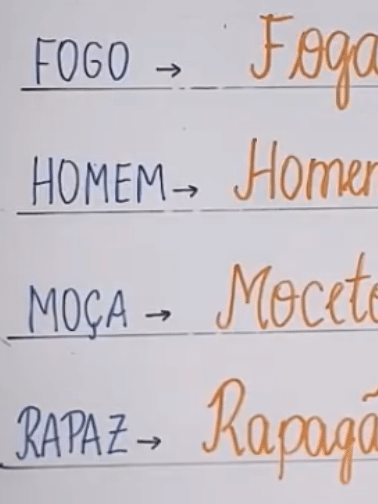 FOGO → Foga
HOMEM → Homer
MOÇA → Mocet
RAPAZ → Rapagã